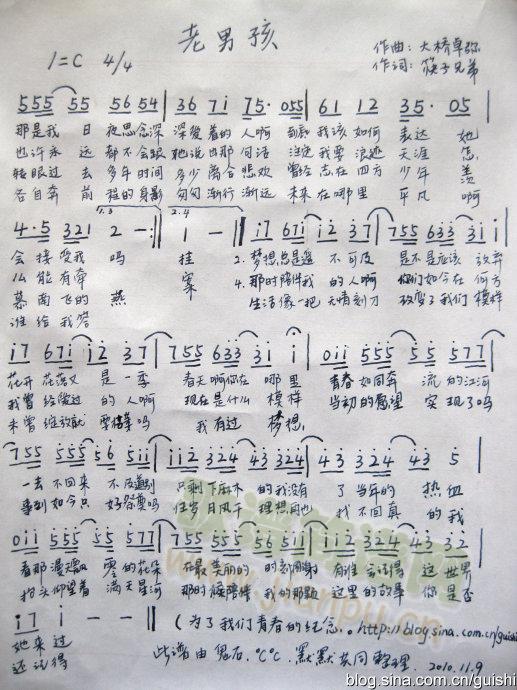 老男孩
1=C 4/4
作曲: 大桥卓弥
作词: 筷子兄弟
555 55 56 54 | 36 7i 75· 055 | 61 12 35· 05 |
那是我 日 夜思念深 深爱着的 人啊 到底 我该 如何 表达 她
也许永 远 都不会跟 她说出那 句话 注定 我要 浪迹 天涯 怎
转眼过 去 多年时间 多少离合 悲欢 曾经 志在 四方 少年 羡
各自奔 前 程的身影 匆匆渐行 渐远 未来 在哪 里 平凡 啊
1.3 2.4
4·5 321 2 -:|| 1 - | i7 67i i2 37 | 755 633 31 i |
会接受我 吗 挂 2. 梦想总是遥 不可及 是不是应该 放弃
么能有牵 案 4. 那时陪伴我 的人啊 你们如今在 何方
慕南飞的 燕 生活像一把 无情刻刀 改变了我们 模样
谁给我答
i7 67i i2 37 | 755 633 31 i | 0ii 555 55 577 |
花开花落又 是一季 春天啊你在 哪里 青春如同奔 流的江河
我曾经爱过 的人啊 现在是什么 模样 当初的愿望 实现了吗
未曾绽放就 要枯萎吗 我有过 梦想
755 555 56 5i | ii2 324 43 324 | 43 324 43 5 |
一去不回来 不及道别 只剩下麻木 的我没有 了当年的 热血
事到如今只 好祭奠吗 任岁月风干 理想再也 找不回真 的我
0ii 555 55 577 | 755 555 56 5ii | ii2 324 43 22 |
看那漫天飘 零的花朵 在最美丽的 时刻凋谢 有谁会记得 这世界
抬头仰望着 满天星河 那时候陪伴 我的那颗 这里的故事 你是否
i7 i - - || (为了我们青春的纪念。http://blog.sina.com.cn/guishi)
她来过
还记得 此谱由男石、℃℃、默默共同整理. 2010.11.9
www.jianpu.cn
blog.sina.com.cn/guishi